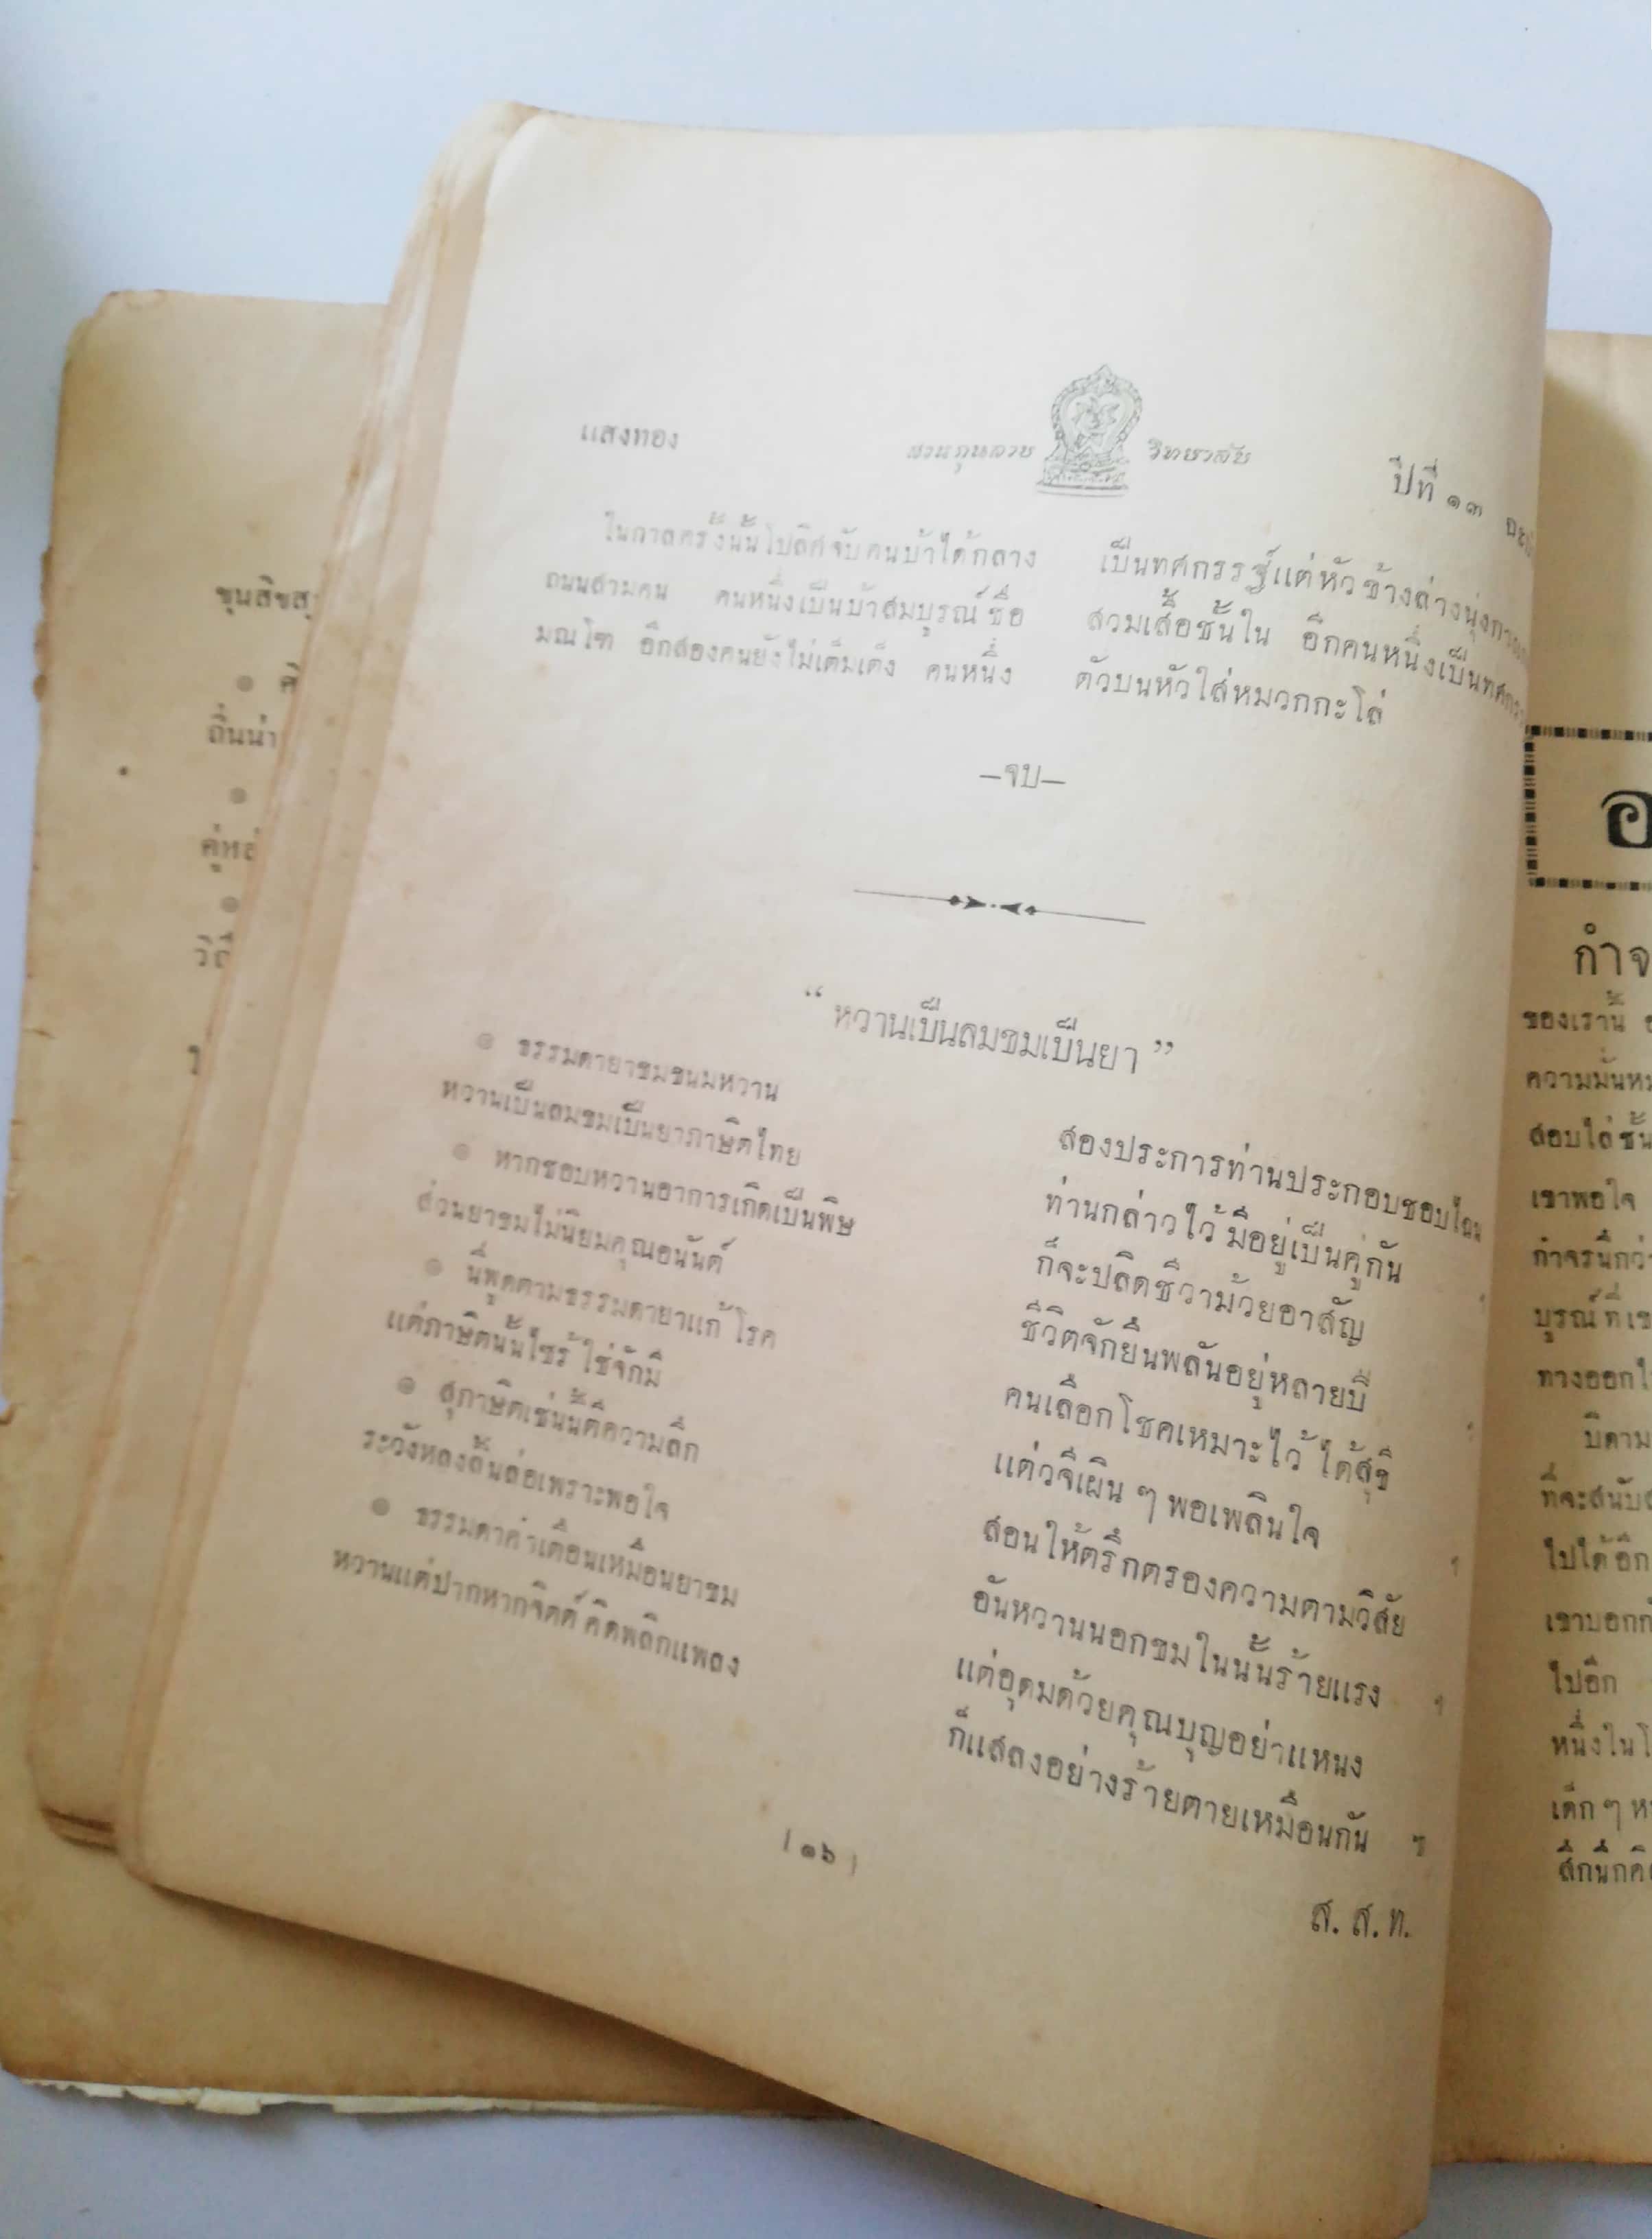 แสงทอง
สวนกุหลาบ วิทยาลัย
ปีที่ ๑๓
ในกาลครั้งนั้นโปลิศจับคนบ้าได้กลาง
ถนนสามคน คนหนึ่งเป็นบ้าสมบูรณ์ ชื่อ
มณโฑ อีกสองคนยังไม่เต็มเต็ง คนหนึ่ง
เป็นทศกรรฐ์แต่หัว ข้างล่างนุ่งกางเกง
สวมเสื้อชั้นใน อีกคนหนึ่งเป็นทศกรร
ตัวบนหัวใส่หมวกกะโล่
—จบ—
“ หวานเป็นลมขมเป็นยา ”
๏ ธรรมดายาขมขนมหวาน สองประการท่านประกอบชอบไฉน
หวานเป็นลมขมเป็นยาภาษิตไทย ท่านกล่าวไว้ มีอยู่เป็นคู่กัน
๏ หากชอบหวานอาการเกิดเป็นพิษ ก็จะปลิดชีวาม้วยอาสัญ
ส่วนยาขมไม่นิยมคุณอนันต์ ชีวิตจักยืนพลันอยู่หลายปี
๏ นี่พูดตามธรรมดายาแก้ โรค คนเลือกโชคเหมาะไว้ ได้สุขี
แต่ภาษิตนั้นไซร้ ใช่จักมี แต่วจีเผิน ๆ พอเพลินใจ
๏ สุภาษิตเช่นนี้คือความลึก สอนให้ตรึกตรองความตามวิสัย
ระวังหลงลิ้นล่อเพราะพอใจ อันหวานนอกขมในนั้นร้ายแรง
๏ ธรรมดาคำเตือนเหมือนยาขม แต่อุดมด้วยคุณบุญอย่าแหนง
หวานแต่ปากหากจิตต์ คิดพลิกแพลง ก็แสลงอย่างร้ายตายเหมือนกัน ฯ
ส. ส. ท.
( ๑๖ )
ถิ่นน่า
กำจ
ของเรานี้
สอบไล่ชั้น
เขาพอใจ
กำจรนึกว่า
บูรณ์ที่เข
ทางออกใ
บิดาม
ที่จะสนับส
ไปได้อีก
เขาบอกกั
ไปอีก
หนึ่งในโ
เด็ก ๆ ห
สึกนึกคิ